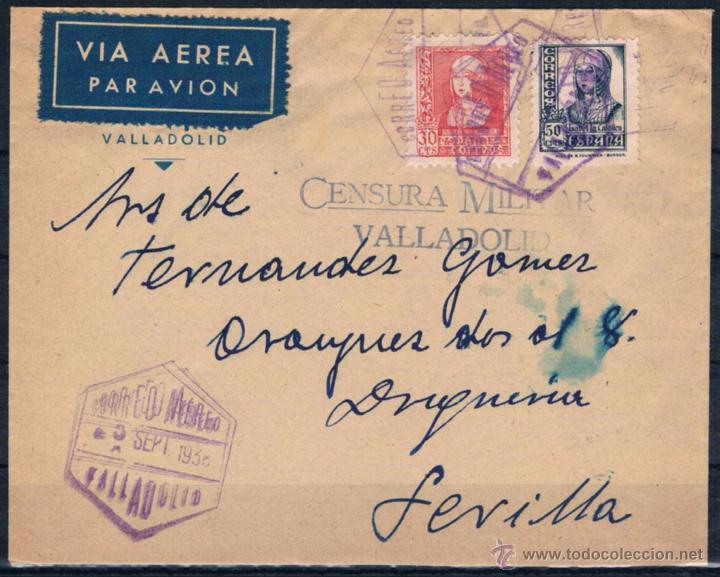 VIA AEREA
PAR AVION
VALLADOLID
CORREO AEREO
30
CTS
ESPAÑA
CORREOS
CORREOS
50
CTS
Isabel la Católica
ESPAÑA
FOURNIER - BURGOS
CENSURA MILITAR
VALLADOLID
Srs de
Fernandez Gomez
Oranques dos al 8.
Drogueria
Sevilla
CORREO AEREO
3 SEPT. 1938
VALLADOLID
todocoleccion.net
www.todocoleccion.net